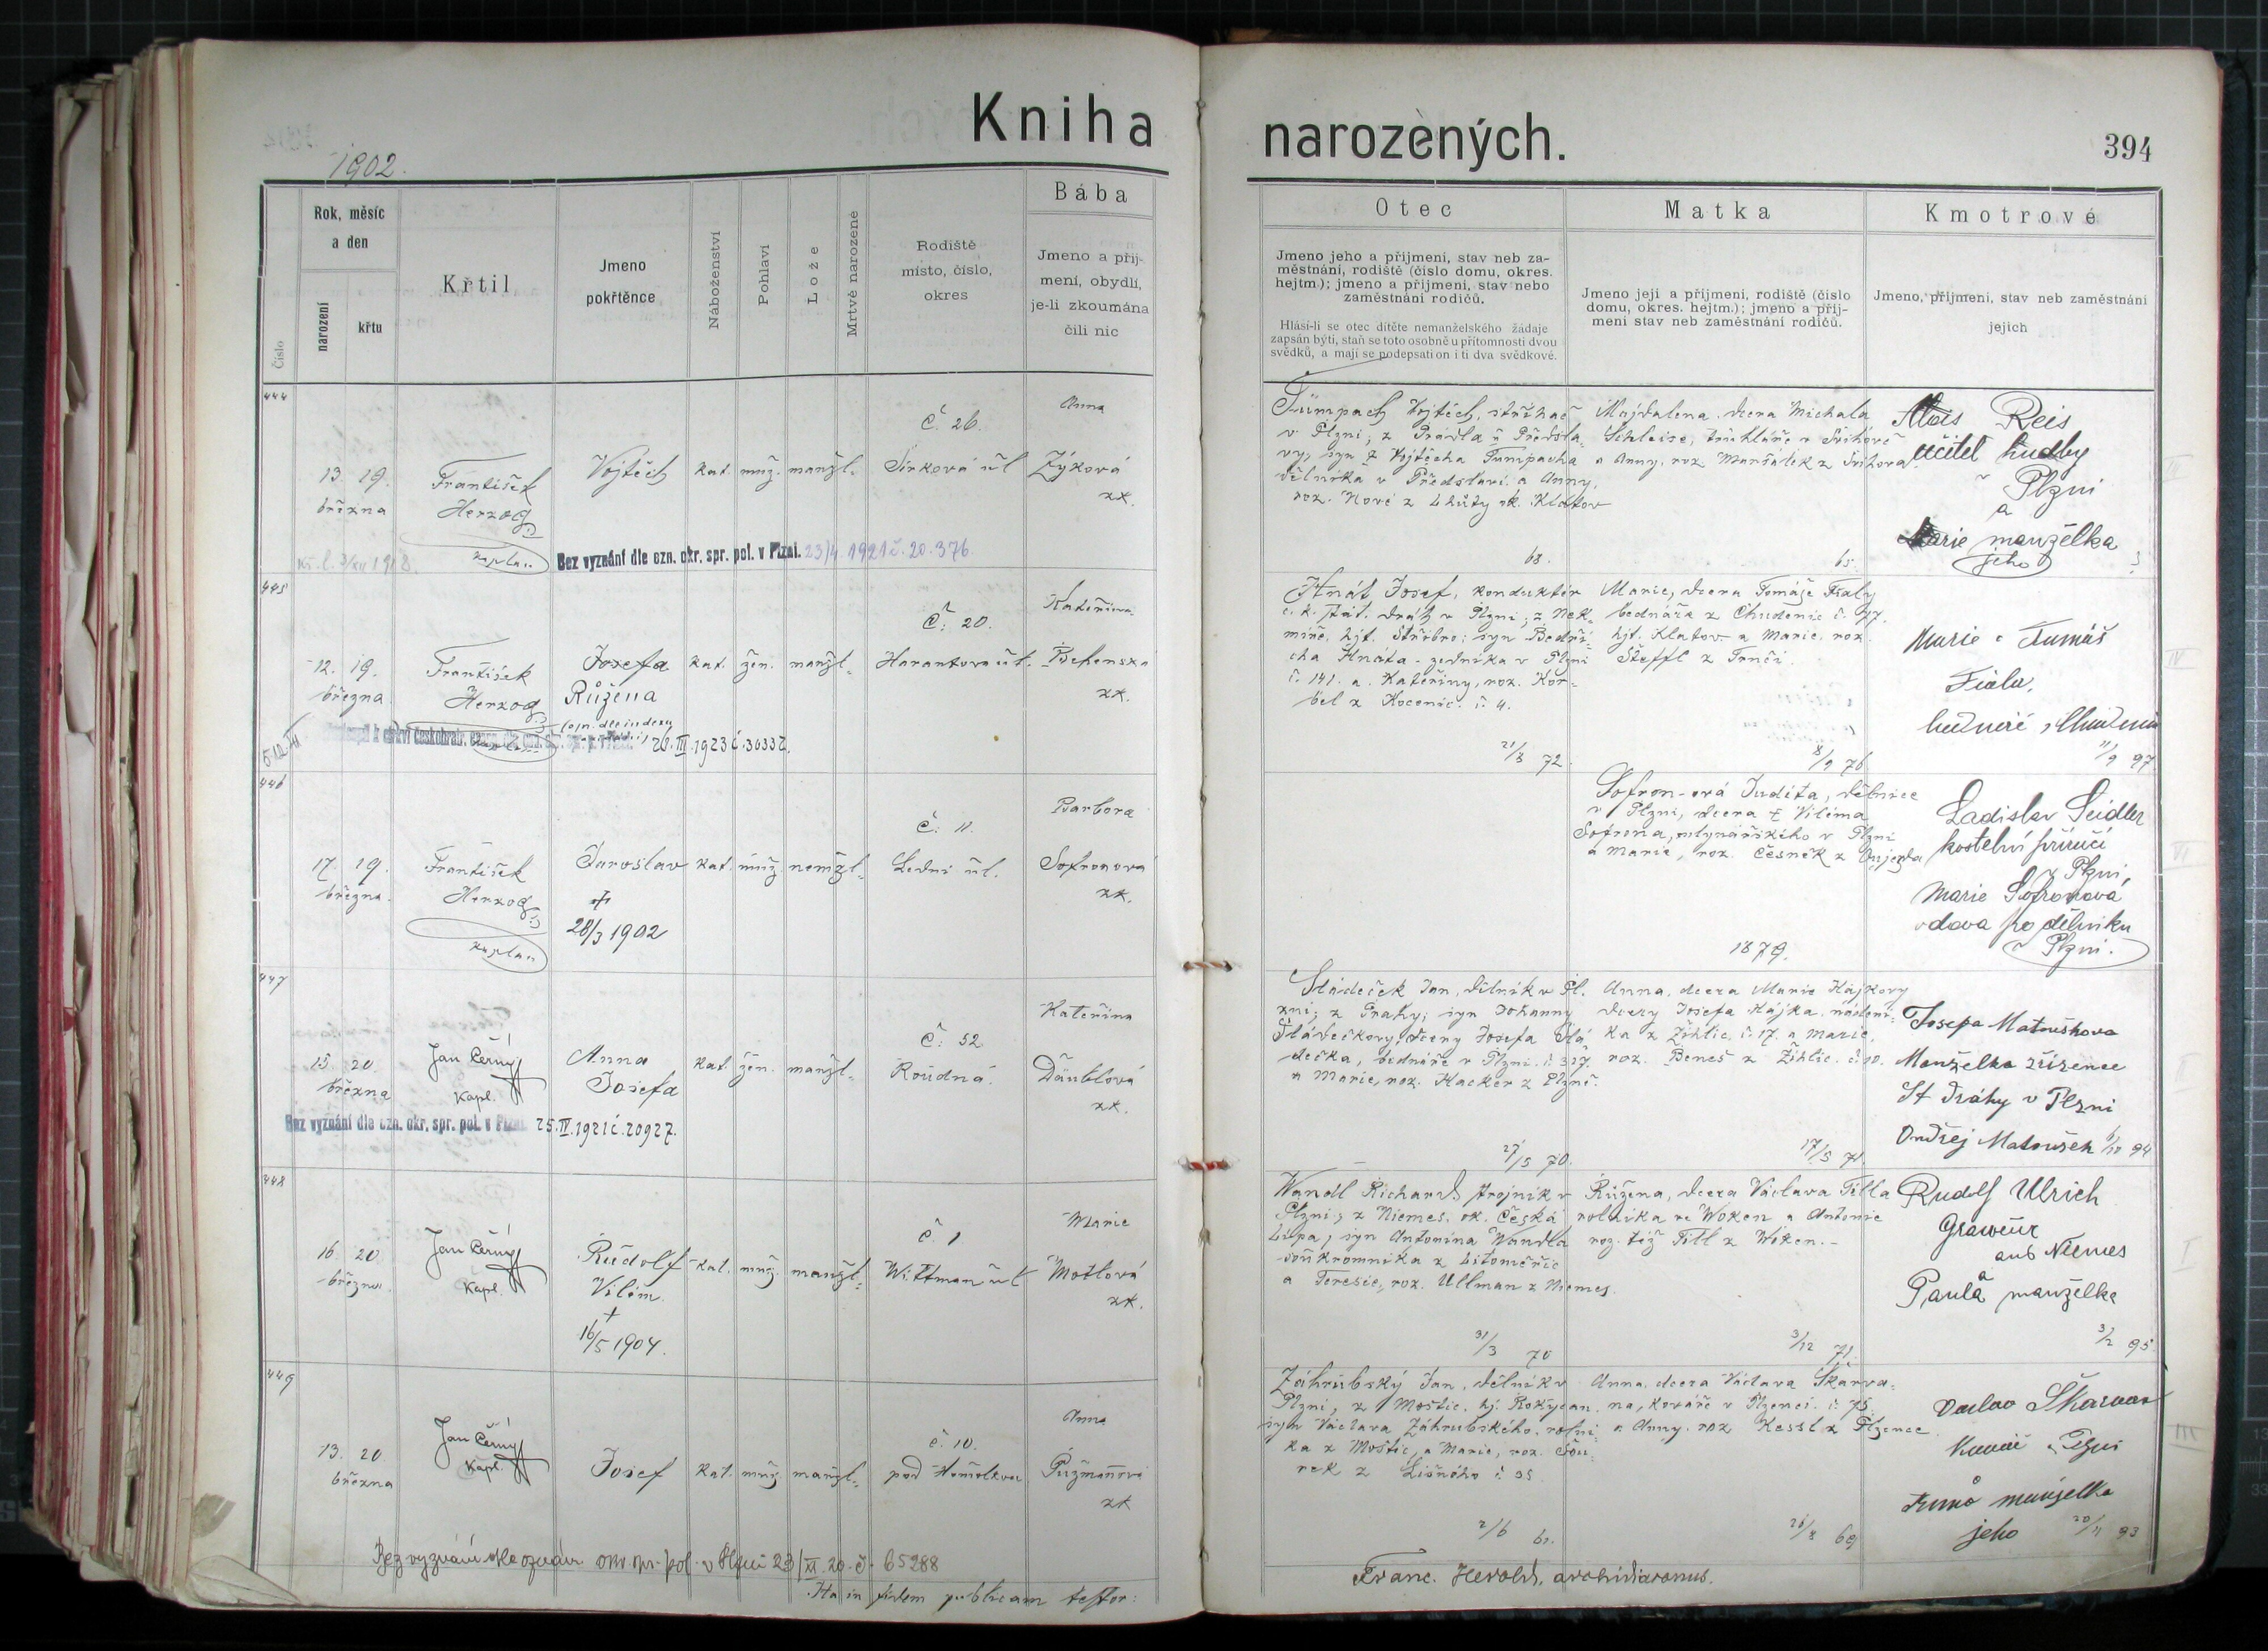 Kniha
narozených.
394
1902.
Číslo
Rok, měsíc
a den
narození
křtu
Křtil
Jmeno
pokřtěnce
Náboženství
Pohlaví
Lože
Mrtvě narozené
Rodiště
místo, číslo,
okres
Bába
Jmeno a příj-
mení, obydlí,
je-li zkoumána
čili nic
Otec
Jmeno jeho a příjmení, stav neb za-
městnání, rodiště (číslo domu, okres.
hejtm.); jmeno a příjmení, stav nebo
zaměstnání rodičů.
Hlásí-li se otec dítěte nemanželského žádaje
zapsán býti, staň se toto osobně u přítomnosti dvou
svědků, a mají se podepsati on i ti dva svědkové.
Matka
Jmeno její a příjmení, rodiště (číslo
domu, okres. hejtm.); jmeno a příj-
mení stav neb zaměstnání rodičů.
Kmotrové
Jmeno, příjmení, stav neb zaměstnání
jejich
444
13. 19.
března
František
Herzog
kaplan
Vojtěch
kat. muž. manžl.
č. 26.
Sirková ul
Anna
Zýková
zk.
Bez vyznání dle ozn. okr. spr. pol. v Plzni. 23/4. 1921 č. 20.376.
Tümpach Vojtěch, střihač
v Plzni; z Prádla u Předsla-
vy, syn Vojtěcha Tumpacha
dělníka v Předslavi a Anny,
roz. Nové z Lhůty ok. Klatov
68.
Majdalena dcera Michala
Schleise, truhláře v Švihově
a Anny, roz. Maršálek z Švihova.
65.
Alois Reis
učitel hudby
v Plzni
a
Marie manželka
jeho
445
12. 19.
března
František
Herzog
Josefa
Růžena
kat. žen. manžl.
č. 20.
Harantova ul.
Kateřina
zk.
26. III. 1923 č. 30332.
Hnát Josef, konduktér
c. k. stát. dráh v Plzni; z Nek-
miře, hjt. Stříbro; syn Bedři-
cha Hnáta - zedníka v Plzni
č. 141. a Kateřiny, roz. Kor-
bel z Kocenic. č. 4.
21/8 72.
Marie, dcera Tomáše Fialy
bednáře z Chudenic č. 77.
hjt. Klatov a Marie, roz.
Steffl z Trnčí.
8/9 76
Marie a Tomáš
Fiala,
11/9 97.
446
17. 19.
března.
František
Herzog
kaplan
Jaroslav
+
28/3 1902
kat. muž. nemžl.
č. 11.
Lední ul.
Barbora
Sofronová
zk.
Sofron-ová Judita, dělnice
v Plzni, dcera + Viléma
Sofrona, mlynářského v Plzni
a Marie, roz. Česnek z Oujezda
1879.
Ladislav Seidler
kostelní příručí
v Plzni,
Marie Sofronová
vdova po dělníku
v Plzni.
447
15. 20.
března
Jan Černý
Kapl.
Anna
Josefa
kat. žen. manžl.
č. 52
Roudná.
Kateřina
Däublová
zk.
Bez vyznání dle ozn. okr. spr. pol. v Plzni. 25. IV. 1921 č. 20927.
Sládeček Jan, dělník v Pl-
zni; z Prahy; syn Johanny
Sládečkovy, dcery Josefa Slá-
dečka, bednáře v Plzni. č. 327.
a Marie, roz. Hacker z Plzně.
27/5 70.
Anna, dcera Marie Hájkovy
dcery Josefa Hájka, nádení-
ka z Žihlic. č. 17. a Marie,
roz. Beneš z Žihlic. č. 10.
17/5 71.
Josefa Matoušková
Manželka zřízence
St dráhy v Plzni
Ondřej Matoušek 6/10 94
448
16. 20.
března.
Jan Černý
Kapl.
Rudolf
Vilém.
+
16/5 1904.
kat. muž. manžl.
č. 1
Wittman ul
Marie
Motlová
zk.
Wandl Richard, strojník v
Plzni; z Niemes, ok. Česká
Lípa; syn Antonína Wandla
soukromníka z Litoměřic
a Teresie, roz. Ullman z Niemes.
31/3 70
Růžena, dcera Václava Tilla
rolníka ve Woken a Antonie
roz. též Till z Woken.
3/12 71.
Rudolf Ulrich
Graveur
aus Niemes
a
Paula manželka
3/2 95.
449
13. 20.
března
Jan Černý
Kapl.
Josef
kat. muž. manžl.
č. 10.
pod Homolkou
Anna
Puzmanová
zk
Bez vyznání dle oznám. okr. spr. pol. v Plzni 23/XI. 20. č. 65288
Záhrubský Jan, dělník v
Plzni, z Moštic. hj. Rokycan.
syn Václava Záhrubského, rolní-
ka z Moštic, a Marie, roz. Šou-
rek z Lišného č. 35.
2/6 61.
Anna, dcera Václava Škarva-
na, kováře v Plzenci. č. 75.
a Anny, roz. Kessl z Plzence.
26/8 69
Václav Škarvan
Kovář v Plzni
Anna manželka
jeho 20/11 93
Ita in fidem publicam testor:
Franc. Herold, archidiaconus.